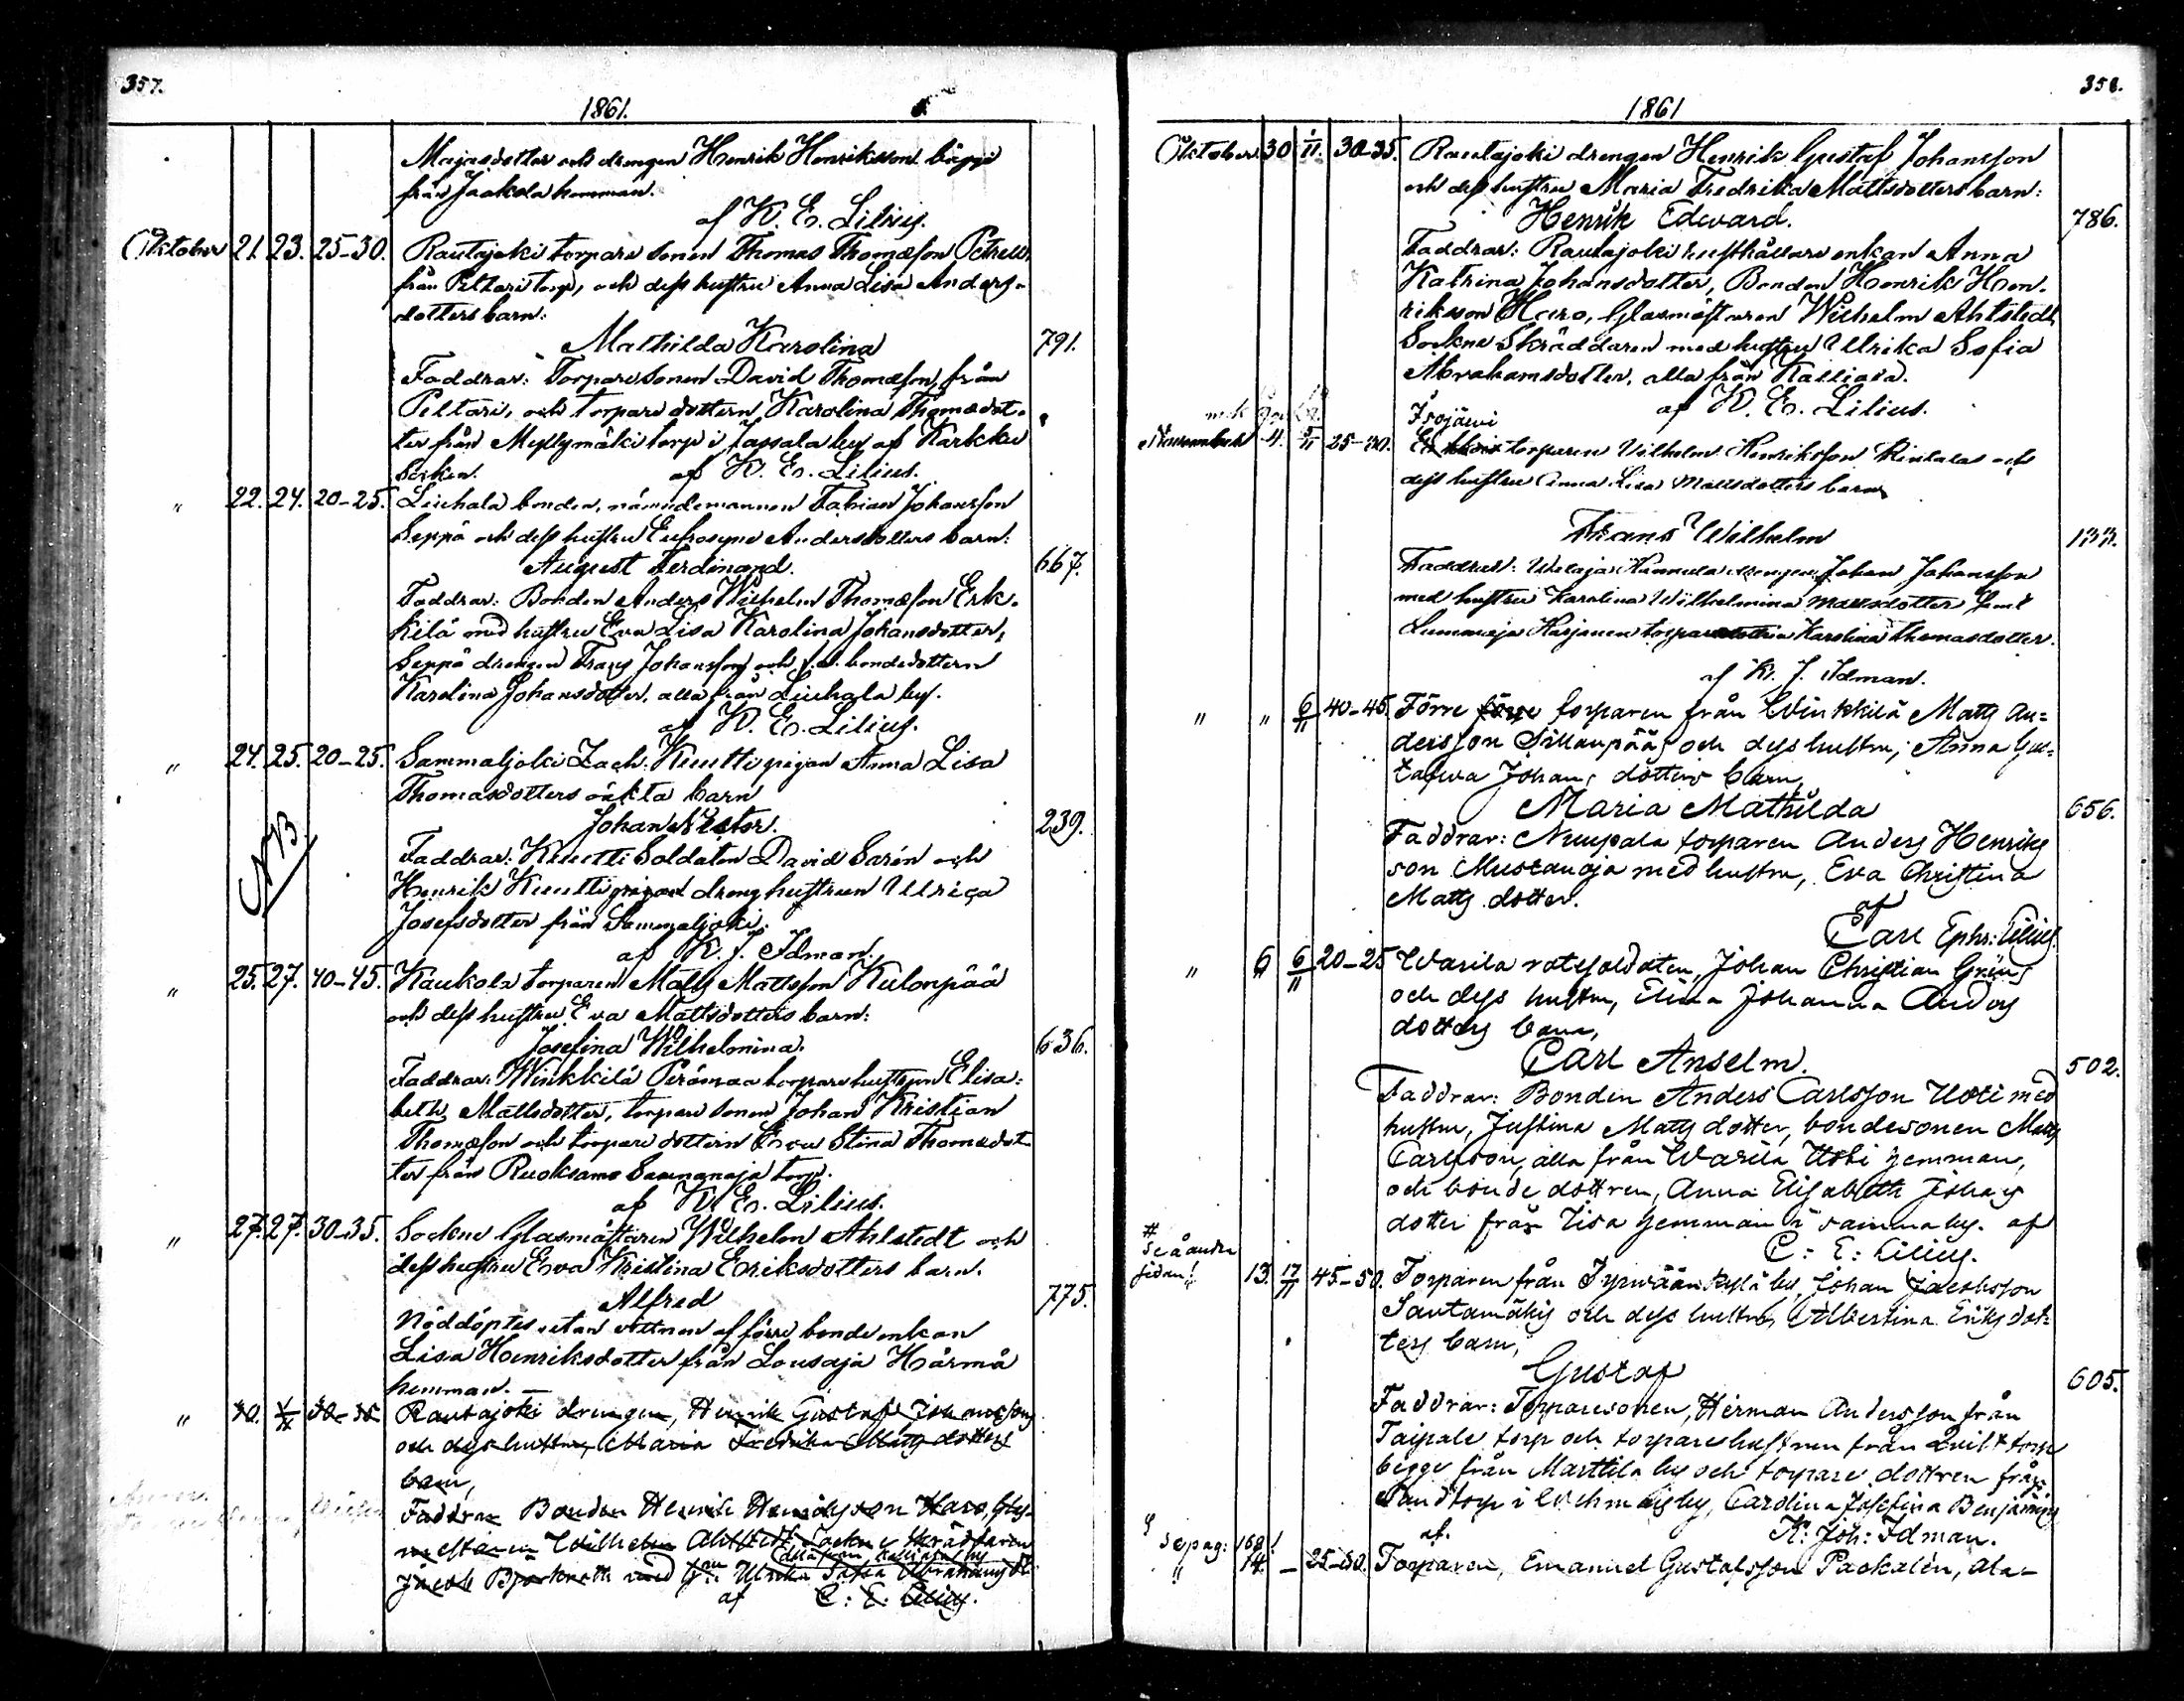 357.
1861.
Majasdotter och drengen Henrik Henriksson bägge
från Jaakola hemman.
af K. E. Lilius.
Oktober 21. 23. 25-30. Rautajoki torpare sonen Thomas Thomasson Petrell
från Peltari torp, och dess hustru Anna Lisa Anders-
dotters barn:
Mathilda Karolina 791.
Faddrar: Torparesonen David Thomasson, från
Peltari, och torpare dottern Karolina Thomædot-
ter från Myllymäki torp i Jassala by af Karkku
Socken. af K. E. Lilius.
" 22. 24. 20-25. Liuhala bonden, nämndemannen Fabian Johansson
Seppä och dess hustru Eufrosyne Andersdotters barn:
August Ferdinand. 667.
Faddrar: Bonden Anders Wilhelm Thomasson Erk-
kilä med hustru Eva Lisa Karolina Johansdotter,
Seppä drengen Frans Johansson och bondedottern
Karolina Johansdotter, alla från Liuhala by.
af K. E. Lilius.
" 24. 25. 20-25. Sammaljoki Zach. Knuutti pigan Anna Lisa
Thomasdotters oäkta barn
Johan Nestor. 239.
NB
Faddrar: Knuutti Soldaten David Sarén och
Henrik Knuutti drenghustrun Ulrica
Josefsdotter från Sammaljoki.
af K. J. Idman.
" 25. 27. 40-45. Kaukola torparen Matts Mattsson Kulonpää
och dess hustru Eva Mattsdotters barn:
Josefina Wilhelmina. 636.
Faddrar: Winkkilä Perämaa torparehustrun Elisa-
beth Mattsdotter, torpare sonen Johan Kristian
Thomasson och torpare dottern Eva Stina Thomædot-
ter från Ruoksamo Saunanoja torp.
af K. E. Lilius.
" 27. 27. 30-35. Sockne Glasmästaren Wilhelm Ahlstedt och
dess hustru Eva Kristina Eriksdotters barn.
Alfred 775.
Nöddöptes utan vittnen af förre bonde enkan
Lisa Henriksdotter från Lousaja Härmä
hemman.
" 30. 1/11 30-35 Rautajoki drengen, Henrik Gustaf Johansson
och dess hustru, Maria Fredrika Matts dotters
barn,
Faddrar Bonden Henrik Henriksson Haro, Glas-
mästaren Wilhelm Ahlstedt, Sockne Skräddaren
alla från Kalliala by
Jacob Björkroth med hru Ulrika Sofia Abrahams dr
af C: E: Lilius.
358.
1861
Oktober 30 1/11. 30-35. Rautajoki drengen Henrik Gustaf Johansson
och dess hustru Maria Fredrika Mattsdotters barn:
Henrik Edward. 786.
Faddrar: Rautajoki husthållare enkan Anna
Katrina Johansdotter, Bonden Henrik Hen-
riksson Haro, Glasmästaren Wilhelm Ahlstedt
Sockne Skräddaren med hustru Ulrika Sofia
Abrahamsdotter, alla från Kalliala.
af K. E. Lilius.
Isojärvi
November 4. 5/11 25-30. torparen Wilhelm Henriksson Rintala och
dess hustru Anna Lisa Mattsdotters barn
Frans Wilhelm 133.
Faddrar: Nunnula drengen Johan Johansson
med hustru Karolina Wilhelmina Mattsdotter samt
Lummaja Harjanen torparedottren Karolina Thomasdotter.
af K. J. Idman.
" " 6/11 40-45. Förre torparen från Winkkilä Matts An-
dersson Sillanpää och dess hustru, Anna Gus-
tafwa Johans dotters barn,
Maria Mathilda 656.
Faddrar: Nuupala torparen Anders Henriks
son Mustanoja med hustru, Eva Christina
Matts dotter. af
Carl Ephr: Lilius.
" 6 6/11 20-25 Warila rotesoldaten, Johan Christian Grön,
och dess hustru, Elina Johanna Anders
dotters barn,
Carl Anselm. 502.
Faddrar: Bonden Anders Carlsson Uoti med
hustru, Justina Matts dotter, bondesonen Matts
Carlsson, alla från Warila Uoti hemman,
och bonde dottren, Anna Elisabeth Johans
dotter från Iisa hemman i samma by. af
C: E: Lilius.
#
Se å andra
sidan!
13. 17/11 45-50. Torparen från Tyrwään by, Johan Jacobsson
Santamäki och dess hustru, Albertina Eriks dot-
ters barn,
Gustaf 605.
Faddrar: Torparesonen, Herman Andersson från
Taipale torp och torparehustrun från torp
begge från Marttila by och torpare dottren från
Sand torp i by, Carolina Josefina Benjamins
af. K: Joh: Idman.
Se pag: 168!
" 14. - 25-30. Torparen, Emanuel Gustafsson Paokalén, Ala-